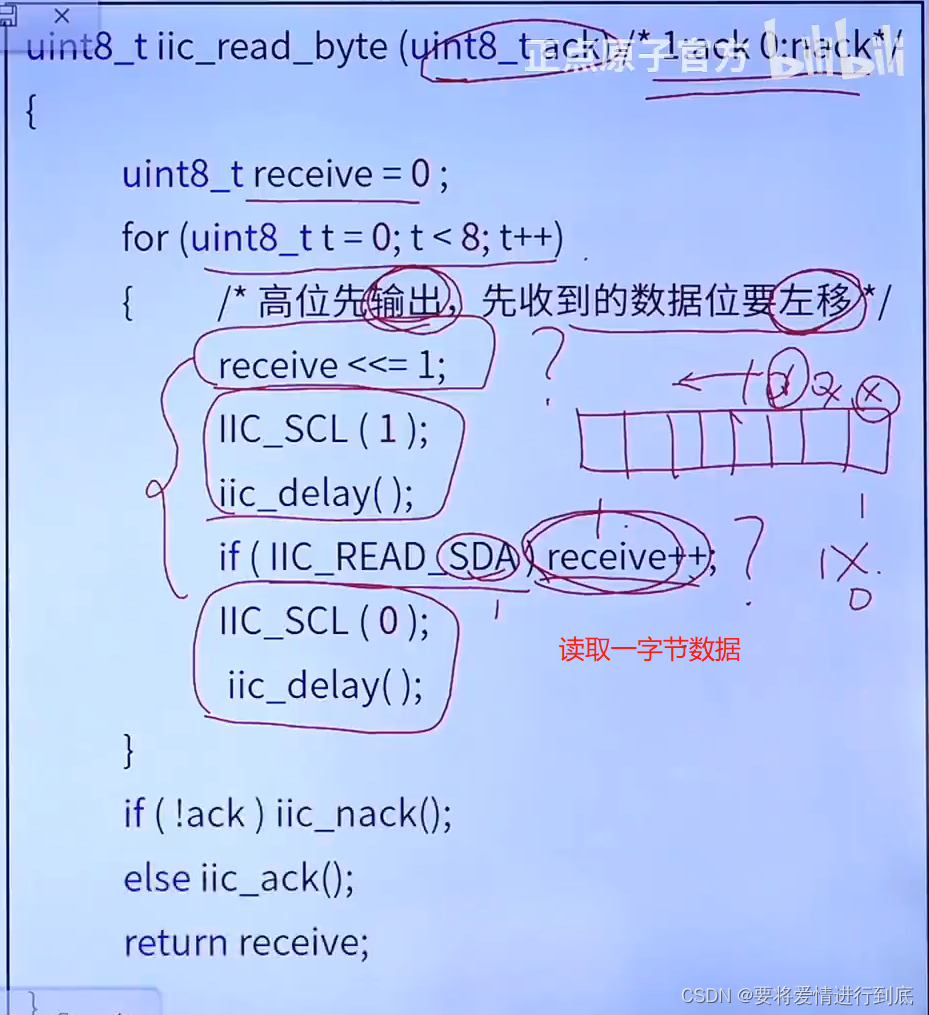 uint8_t iic_read_byte (uint8_t ack) /* 1:ack 0:nack*/
正点原子官方 bilibili
{
uint8_t receive = 0 ;
for (uint8_t t = 0; t < 8; t++)
{ /* 高位先输出，先收到的数据位要左移 */
receive <<= 1; ?
IIC_SCL ( 1 );
iic_delay( );
if ( IIC_READ_SDA ) receive++; ?
IIC_SCL ( 0 );
读取一字节数据
iic_delay( );
}
if ( !ack ) iic_nack();
else iic_ack();
return receive;
}
CSDN @要将爱情进行到底